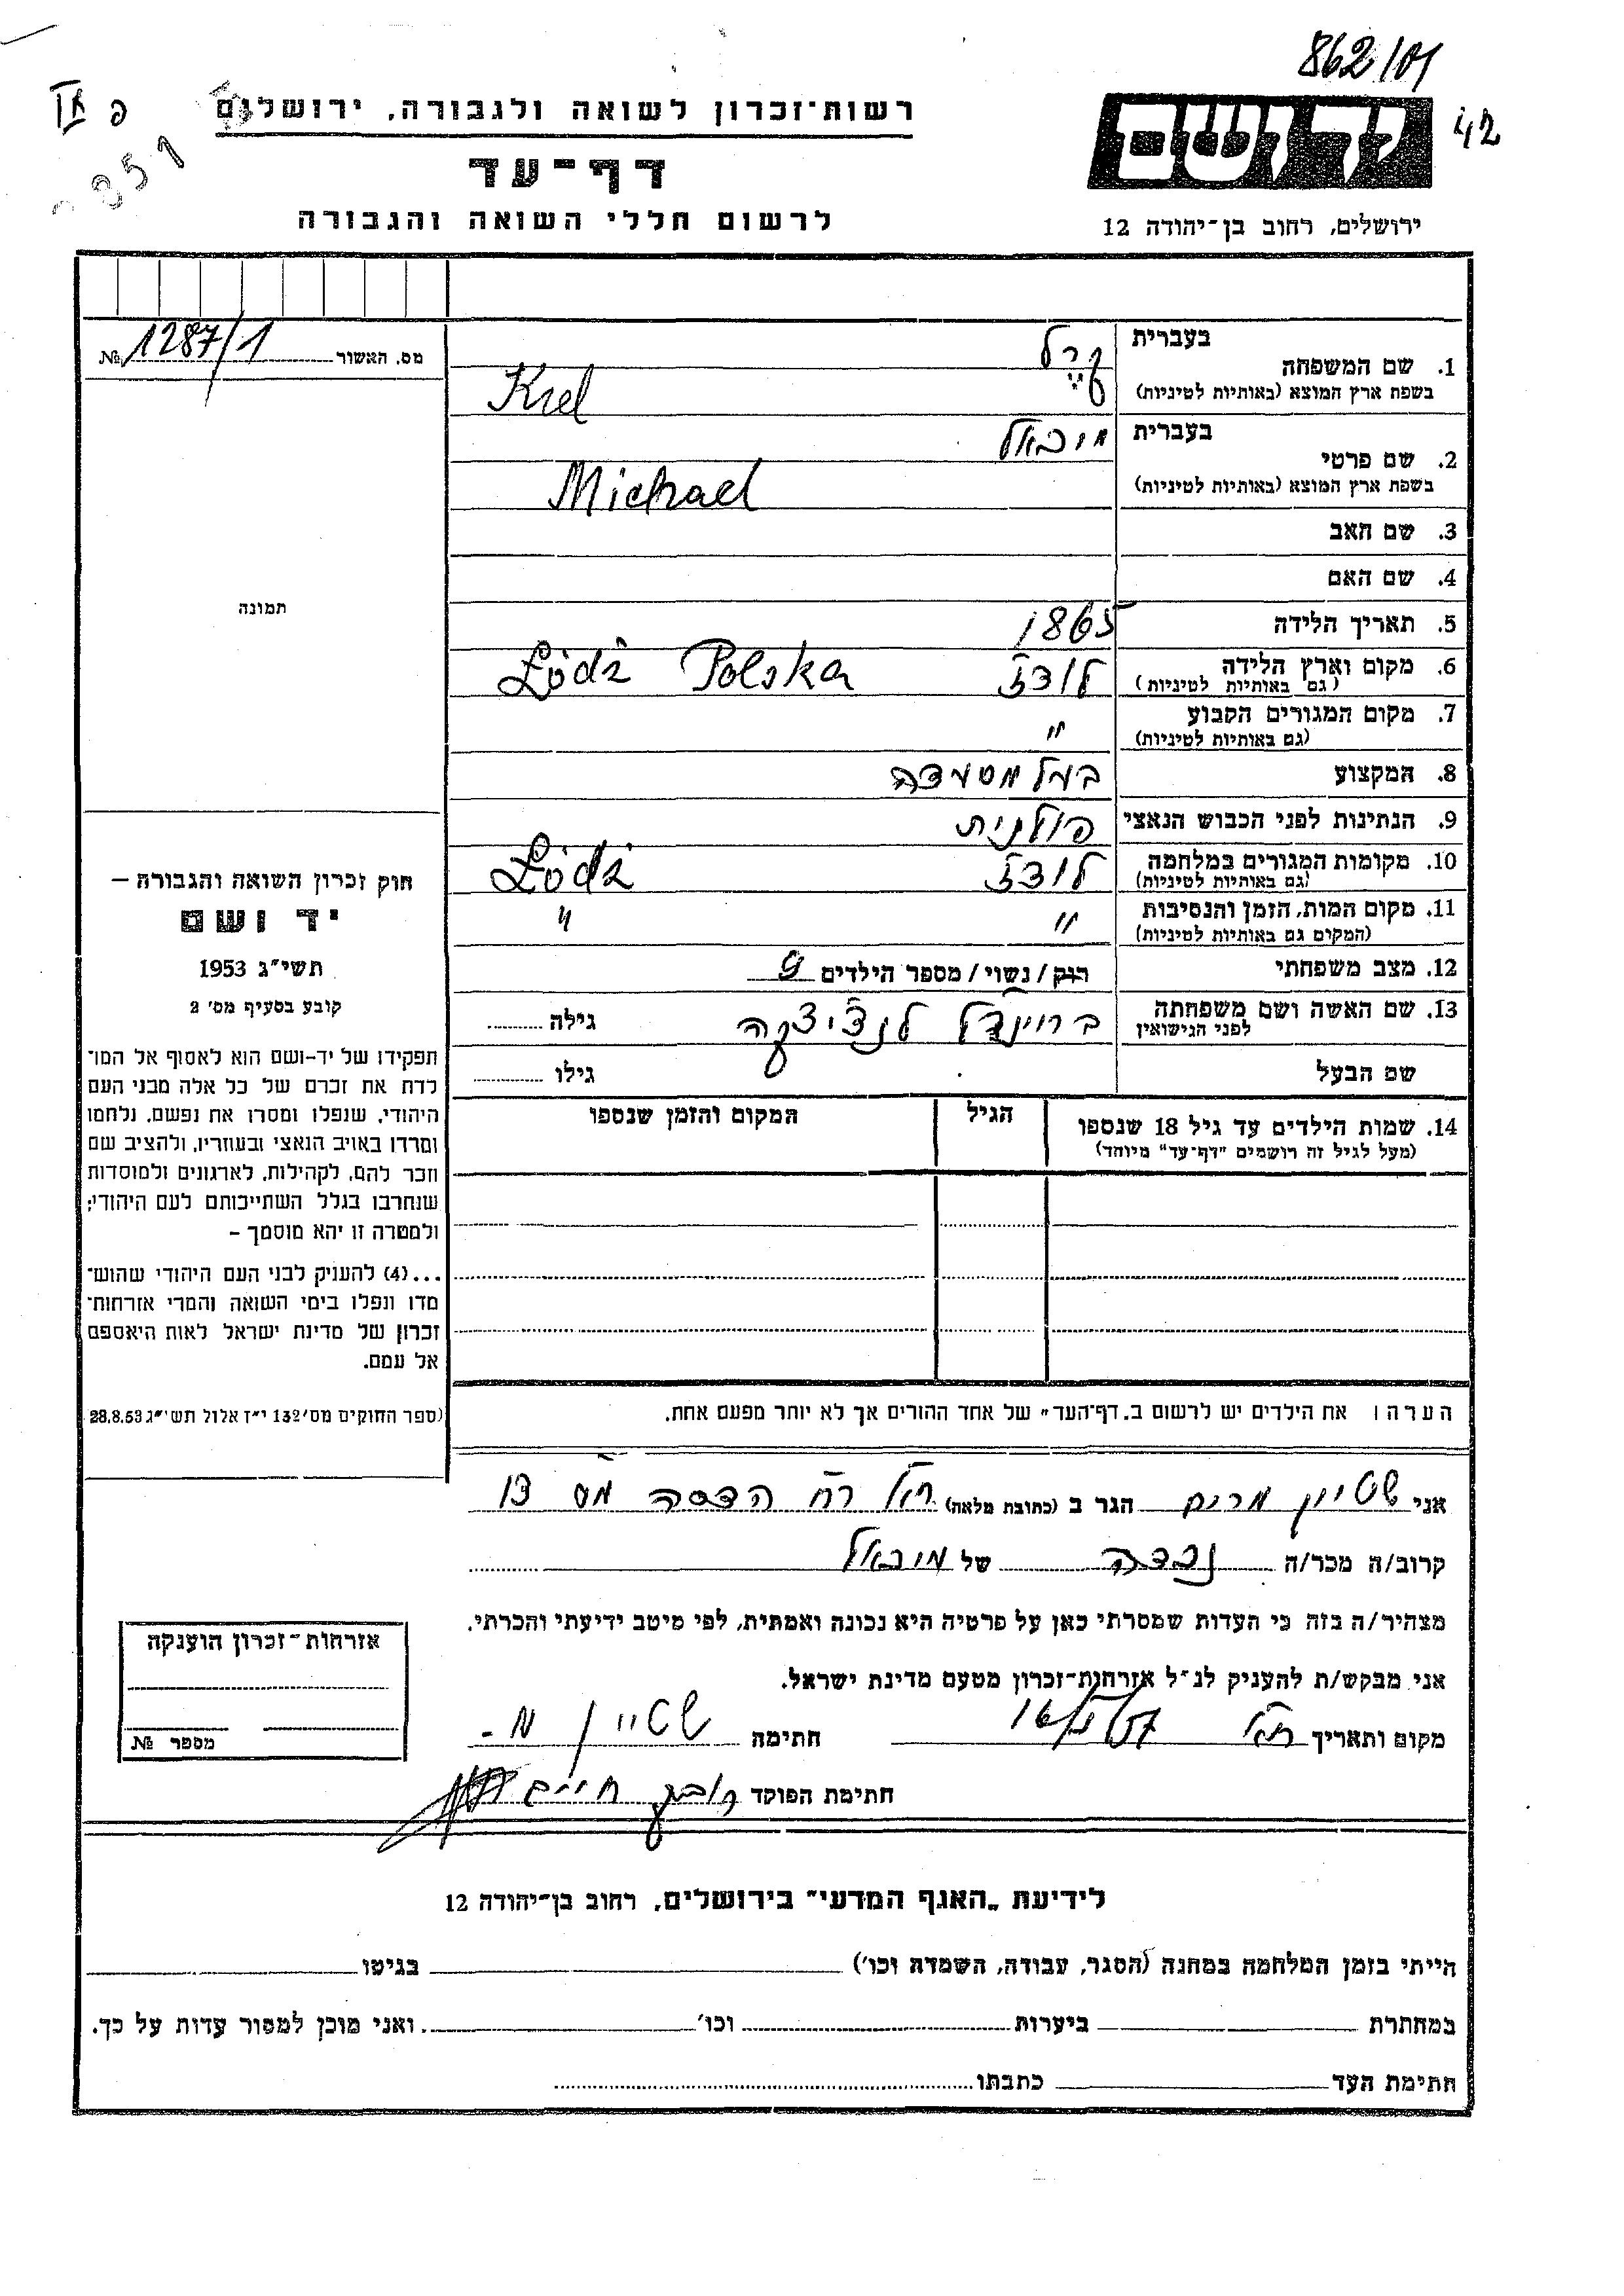 862/01
42
רשות־זכרון לשואה ולגבורה, ירושלים
דף־עד
לרשום חללי השואה והגבורה
יד ושם
ירושלים, רחוב בן־יהודה 12
מס. האשור 1287/1 №
בעברית
1. שם המשפחה קרל
בשפת ארץ המוצא (באותיות לטיניות) Krel
בעברית מיכאל
2. שם פרטי
בשפת ארץ המוצא (באותיות לטיניות) Michael
3. שם האב
4. שם האם
5. תאריך הלידה 1865
6. מקום וארץ הלידה לודז Łódź Polska
(גם באותיות לטיניות)
7. מקום המגורים הקבוע "
(גם באותיות לטיניות)
8. המקצוע בעל מספדה
9. הנתינות לפני הכבוש הנאצי פולנית
10. מקומות המגורים במלחמה לודז Łódź
(גם באותיות לטיניות)
11. מקום המות, הזמן והנסיבות " "
(המקום גם באותיות לטיניות)
12. מצב משפחתי רוק/נשוי/מספר הילדים 9
13. שם האשה ושם משפחתה
לפני הנישואין גילה
שם הבעל גילו
14. שמות הילדים עד גיל 18 שנספו הגיל המקום והזמן שנספו
(מעל לגיל זה רושמים "דף־עד" מיוחד)
הערה: את הילדים יש לרשום ב„דף־העד" של אחד ההורים אך לא יותר מפעם אחת.
תמונה
חוק זכרון השואה והגבורה –
יד ושם
תשי"ג 1953
קובע בסעיף מס' 2
תפקידו של יד-ושם הוא לאסוף אל המו־
לדת את זכרם של כל אלה מבני העם
היהודי, שנפלו ומסרו את נפשם, נלחמו
ומרדו באויב הנאצי ובעוזריו, ולהציב שם
וזכר להם, לקהילות, לארגונים ולמוסדות
שנחרבו בגלל השתייכותם לעם היהודי;
ולמטרה זו יהא מוסמך –
...(4) להעניק לבני העם היהודי שהוש־
מדו ונפלו בימי השואה והמרי אזרחות־
זכרון של מדינת ישראל לאות היאספם
אל עמם.
(ספר החוקים מס' 132 י"ז אלול תשי"ג 28.8.53
אני שטיין מרים הגר ב (כתובת מלאה) ת"א רח' הדסה מס 13
קרוב/ה מכר/ה נכדה של מיכאל
מצהיר/ה בזה כי העדות שמסרתי כאן על פרטיה היא נכונה ואמתית, לפי מיטב ידיעתי והכרתי.
אני מבקש/ת להעניק לנ"ל אזרחות־זכרון מטעם מדינת ישראל.
מקום ותאריך ת"א חתימה שטיין מ-
חתימת הפוקד חיים
אזרחות־זכרון הוענקה
מספר №
לידיעת „האגף המדעי" בירושלים, רחוב בן־יהודה 12
הייתי בזמן המלחמה במחנה (הסגר, עבודה, השמדה וכו') בגיטו
במחתרת ביערות וכו' ואני מוכן למסור עדות על כך.
חתימת העד כתבתו